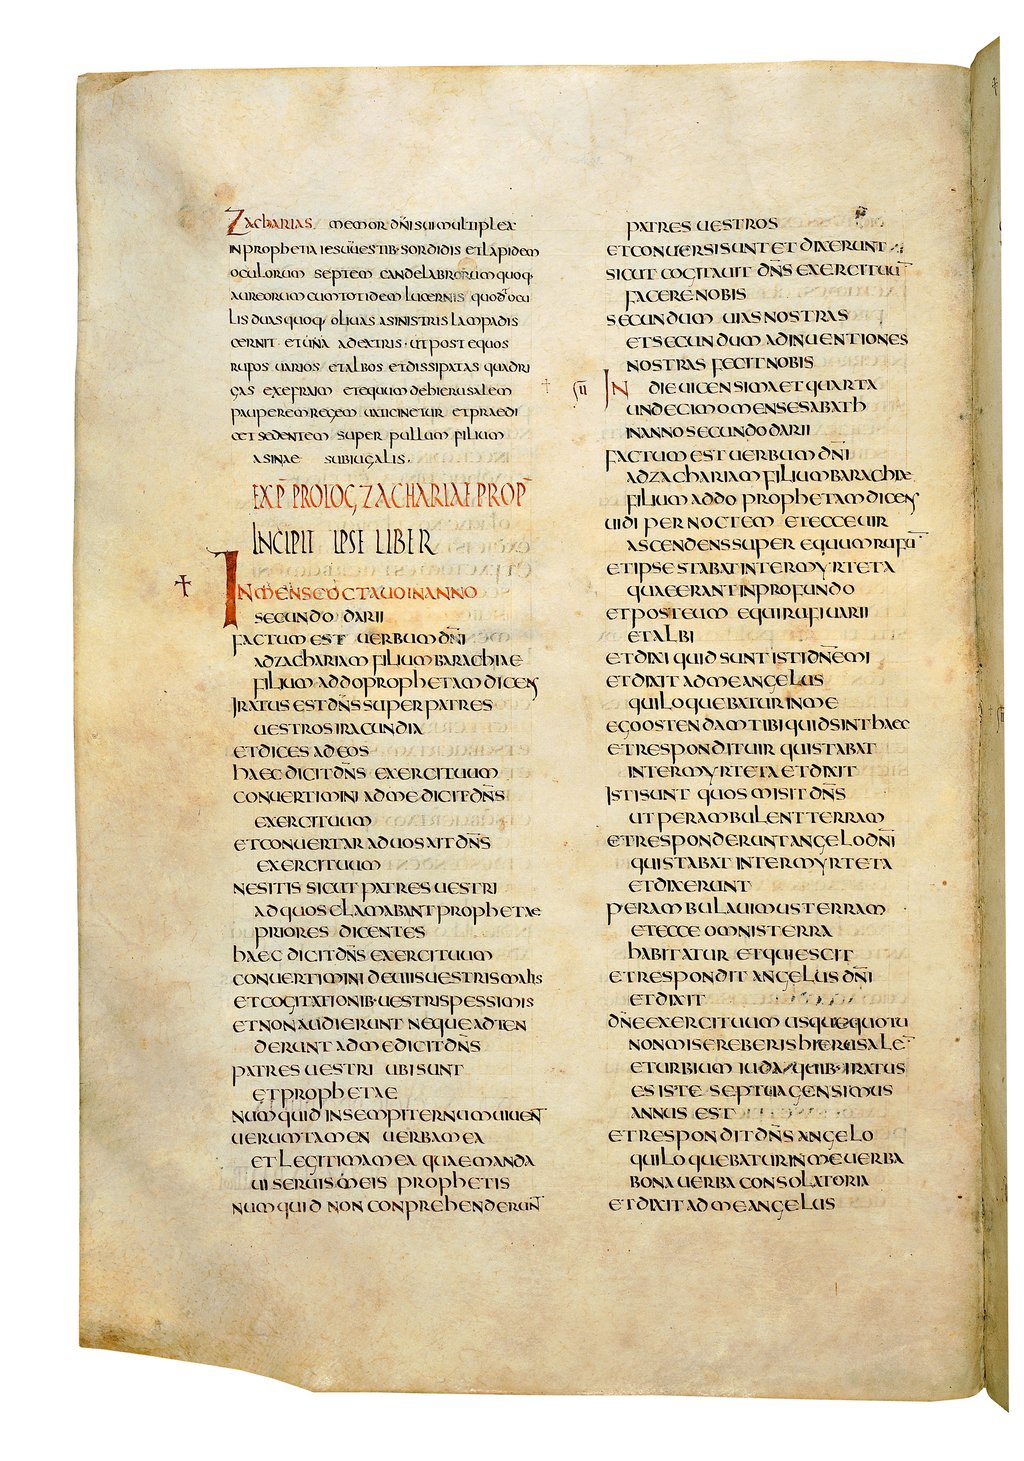 ZACHARIAS MEMOR DÑI SUI MULTIPLEX
IN PROPHETIA IESU UESTIB· SORDIDIS ET LAPIDEM
OCULORUM SEPTEM CANDELABRORUMQUOQ·
AUREORUM CUM TOTIDEM LUCERNIS QUOD OCU
LIS DUAS QUOQ· OLIUAS A SINISTRIS LAMPADIS
CERNIT ET UNA A DEXTRIS· UT POST EQUOS
RUFOS UARIOS ET ALBOS ET DISSIPATAS QUADRI
GAS EX EFRAIM ET EQUUM DE HIERUSALEM
PAUPEREM REGEM UATICINETUR ET PRAEDI
CET SEDENTEM SUPER PULLUM FILIUM
ASINAE SUBIUGALIS·
EXP̄ PROLOG ZACHARIAE PROP̄
INCIPIT IPSE LIBER
IN MENSE OCTAUO IN ANNO
SECUNDO DARII
FACTUM EST UERBUM DÑI
AD ZACHARIAM FILIUM BARACHIAE
FILIUM ADDO PROPHETAM DICENS
IRATUS EST DÑS SUPER PATRES
UESTROS IRACUNDIA
ET DICES AD EOS
HAEC DICIT DÑS EXERCITUUM
CONUERTIMINI AD ME DICIT DÑS
EXERCITUUM
ET CONUERTAR AD UOS AIT DÑS
EXERCITUUM
NE SITIS SICUT PATRES UESTRI
AD QUOS CLAMABANT PROPHETAE
PRIORES DICENTES
HAEC DICIT DÑS EXERCITUUM
CONUERTIMINI DE UIIS UESTRIS MALIS
ET COGITATIONIB· UESTRIS PESSIMIS
ET NON AUDIERUNT NEQUE ADTEN
DERUNT AD ME DICIT DÑS
PATRES UESTRI UBI SUNT
ET PROPHETAE
NUMQUID IN SEMPITERNUM UIUENT
UERUMTAMEN UERBA MEA
ET LEGITIMA MEA QUAE MANDA
UI SERUIS MEIS PROPHETIS
NUMQUID NON CONPREHENDERUNT
PATRES UESTROS
ET CONUERSI SUNT ET DIXERUNT
SICUT COGITAUIT DÑS EXERCITUŪ
FACERE NOBIS
SECUNDUM UIAS NOSTRAS
ET SECUNDUM ADINUENTIONES
NOSTRAS FECIT NOBIS
IN DIE UICENSIMA ET QUARTA
UNDECIMO MENSE SABATH
IN ANNO SECUNDO DARII
FACTUM EST UERBUM DÑI
AD ZACHARIAM FILIUM BARACHIAE
FILIUM ADDO PROPHETAM DICENS
UIDI PER NOCTEM ET ECCE UIR
ASCENDENS SUPER EQUUM RUFŪ
ET IPSE STABAT INTER MYRTETA
QUAE ERANT IN PROFUNDO
ET POST EUM EQUI RUFI UARII
ET ALBI
ET DIXI QUID SUNT ISTI DÑE MI
ET DIXIT AD ME ANGELUS
QUI LOQUEBATUR IN ME
EGO OSTENDAM TIBI QUID SINT HAEC
ET RESPONDIT UIR QUI STABAT
INTER MYRTETA ET DIXIT
ISTI SUNT QUOS MISIT DÑS
UT PERAMBULENT TERRAM
ET RESPONDERUNT ANGELO DÑI
QUI STABAT INTER MYRTETA
ET DIXERUNT
PERAMBULAUIMUS TERRAM
ET ECCE OMNIS TERRA
HABITATUR ET QUIESCIT
ET RESPONDIT ANGELUS DÑI
ET DIXIT
DÑE EXERCITUUM USQUEQUO TU
NON MISEREBERIS HIERUSALĒ
ET URBIUM IUDA QUIB· IRATUS
ES ISTE SEPTUAGENSIMUS
ANNUS EST
ET RESPONDIT DÑS ANGELO
QUI LOQUEBATUR IN ME UERBA
BONA UERBA CONSOLATORIA
ET DIXIT AD ME ANGELUS